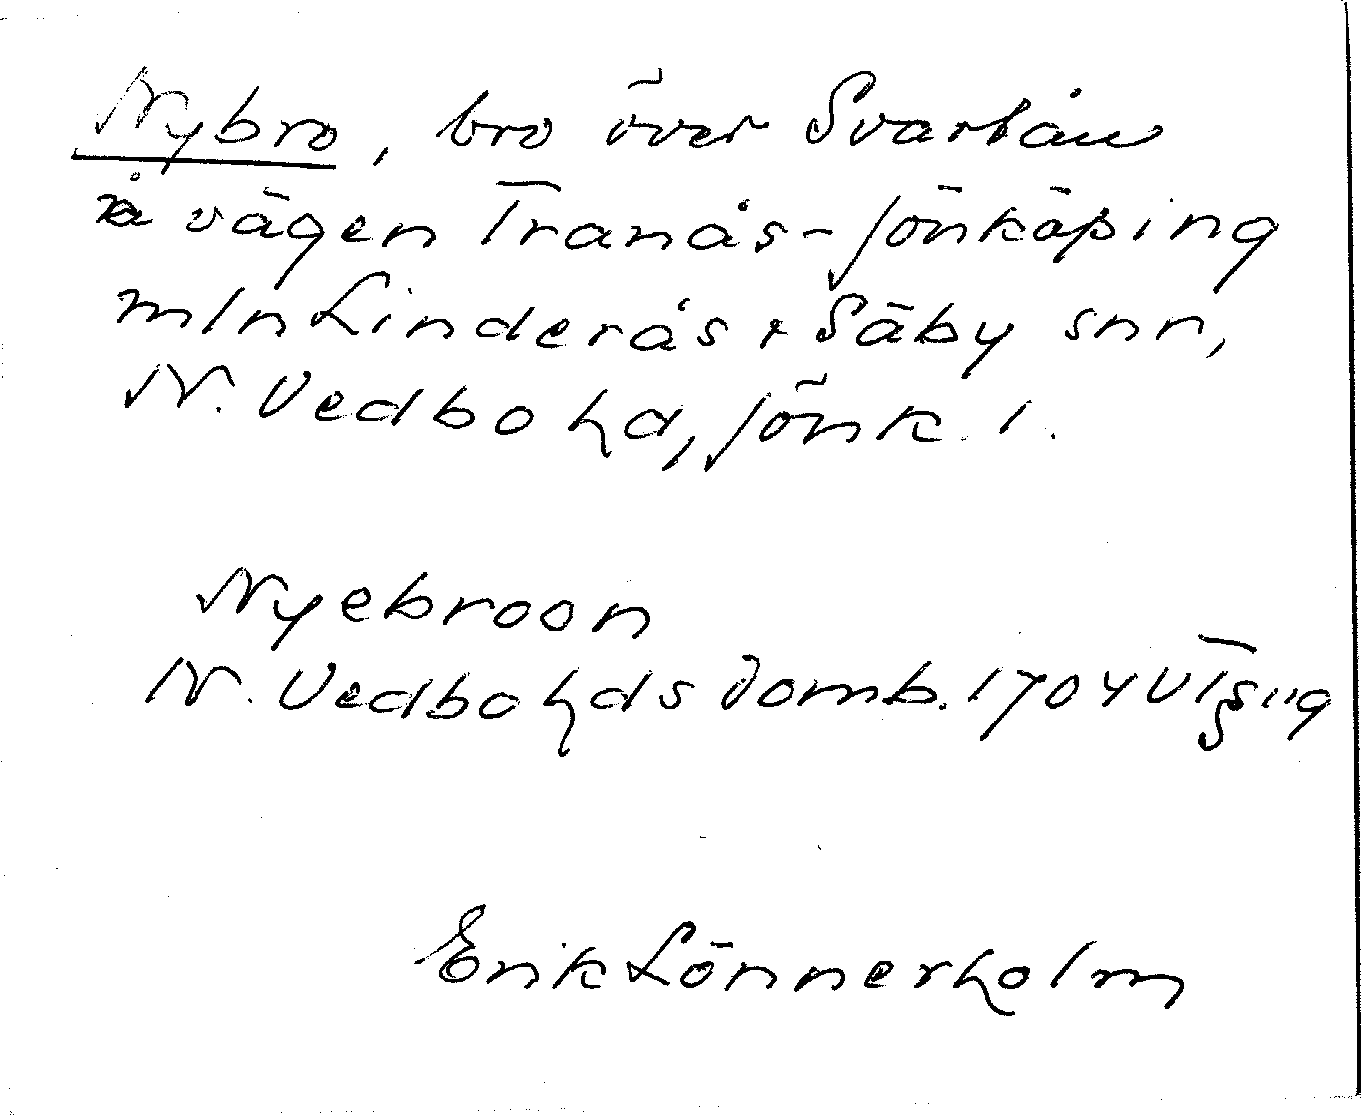 Nybro, bro över Svartån
å vägen Tranås-Jönköping
mln Linderås & Säby snr,
N. Vedbo hd, Jönk. l.
Nyebroon
N. Vedbo hds domb. 1704 VT § 119
Erik Lönnerholm